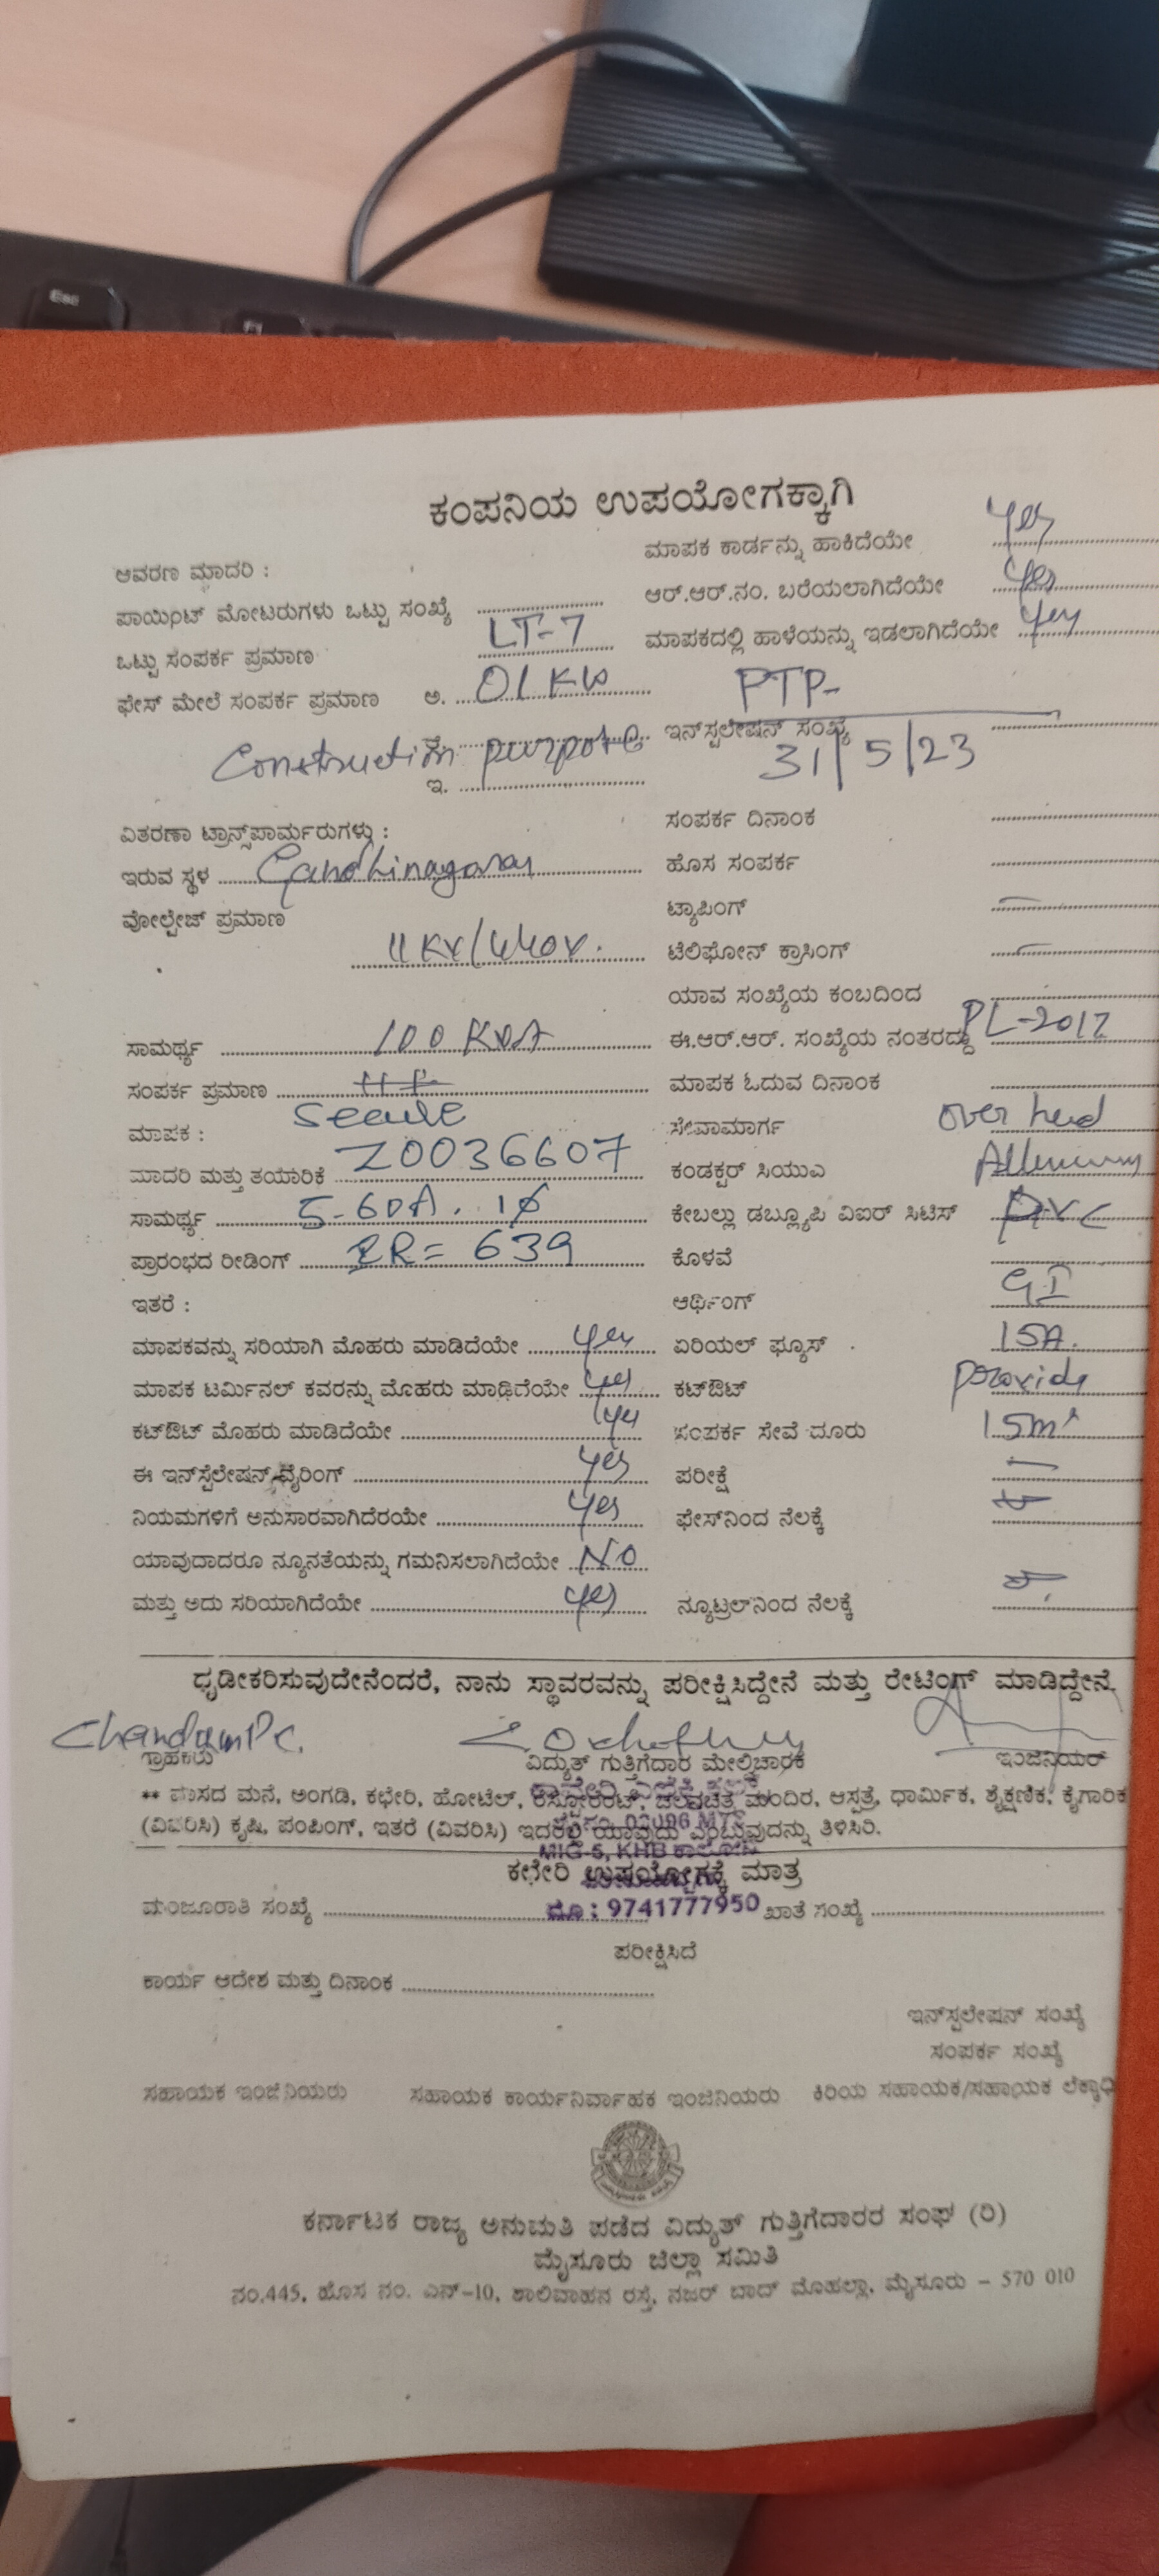 Esc
F1
ಕಂಪನಿಯ ಉಪಯೋಗಕ್ಕಾಗಿ
ಆವರಣ ಮಾದರಿ :
ಮಾಪಕ ಕಾರ್ಡನ್ನು ಹಾಕಿದೆಯೇ yes
ಪಾಯಿಂಟ್ ಮೋಟರುಗಳು ಒಟ್ಟು ಸಂಖ್ಯೆ
ಆರ್.ಆರ್.ನಂ. ಬರೆಯಲಾಗಿದೆಯೇ yes
ಒಟ್ಟು ಸಂಪರ್ಕ ಪ್ರಮಾಣ LT-7
ಮಾಪಕದಲ್ಲಿ ಹಾಳೆಯನ್ನು ಇಡಲಾಗಿದೆಯೇ yes
ಫೇಸ್ ಮೇಲೆ ಸಂಪರ್ಕ ಪ್ರಮಾಣ ಅ. 01 KW
PTP-
Construction purpose
ಇನ್‌ಸ್ಪಲೇಷನ್ ಸಂಖ್ಯೆ
31/5/23
ಇ.
ವಿತರಣಾ ಟ್ರಾನ್ಸ್‌ಪಾರ್ಮರುಗಳು :
ಸಂಪರ್ಕ ದಿನಾಂಕ
ಇರುವ ಸ್ಥಳ Gandhinagar
ಹೊಸ ಸಂಪರ್ಕ
ವೋಲ್ಟೇಜ್ ಪ್ರಮಾಣ
ಟ್ಯಾಪಿಂಗ್ —
11KV/440V.
ಟೆಲಿಫೋನ್ ಕ್ರಾಸಿಂಗ್ —
ಯಾವ ಸಂಖ್ಯೆಯ ಕಂಬದಿಂದ
ಸಾಮರ್ಥ್ಯ 100 KVA
ಈ.ಆರ್.ಆರ್. ಸಂಖ್ಯೆಯ ನಂತರದ್ದು PL-2017
ಸಂಪರ್ಕ ಪ್ರಮಾಣ
ಮಾಪಕ ಓದುವ ದಿನಾಂಕ
ಮಾಪಕ : Secure
ಸೇವಾಮಾರ್ಗ over head
ಮಾದರಿ ಮತ್ತು ತಯಾರಿಕೆ Z0036607
ಕಂಡಕ್ಟರ್ ಸಿಯುಎ
ಸಾಮರ್ಥ್ಯ 5-60A. 1φ
ಕೇಬಲ್ಲು ಡಬ್ಲ್ಯೂಪಿ ವಿಐರ್ ಸಿಟಿಸ್ PVC
ಪ್ರಾರಂಭದ ರೀಡಿಂಗ್ IR= 639
ಕೊಳವೆ
ಇತರೆ :
ಆರ್ಥಿಂಗ್ GI
ಮಾಪಕವನ್ನು ಸರಿಯಾಗಿ ಮೊಹರು ಮಾಡಿದೆಯೇ yes
ಏರಿಯಲ್ ಫ್ಯೂಸ್ 15A.
ಮಾಪಕ ಟರ್ಮಿನಲ್ ಕವರನ್ನು ಮೊಹರು ಮಾಡಿದೆಯೇ yes
ಕಟ್‌ಔಟ್ provide
ಕಟ್‌ಔಟ್ ಮೊಹರು ಮಾಡಿದೆಯೇ yes
ಸಂಪರ್ಕ ಸೇವೆ ದೂರು 15m
ಈ ಇನ್‌ಸ್ಟಲೇಷನ್ ವೈರಿಂಗ್ yes
ಪರೀಕ್ಷೆ —
ನಿಯಮಗಳಿಗೆ ಅನುಸಾರವಾಗಿದೆರಯೇ yes
ಫೇಸ್‌ನಿಂದ ನೆಲಕ್ಕೆ
ಯಾವುದಾದರೂ ನ್ಯೂನತೆಯನ್ನು ಗಮನಿಸಲಾಗಿದೆಯೇ NO
ಮತ್ತು ಅದು ಸರಿಯಾಗಿದೆಯೇ yes
ನ್ಯೂಟ್ರಲ್‌ನಿಂದ ನೆಲಕ್ಕೆ
ಧೃಡೀಕರಿಸುವುದೇನೆಂದರೆ, ನಾನು ಸ್ಥಾವರವನ್ನು ಪರೀಕ್ಷಿಸಿದ್ದೇನೆ ಮತ್ತು ರೇಟಿಂಗ್ ಮಾಡಿದ್ದೇನೆ.
ಗ್ರಾಹಕರು ವಿದ್ಯುತ್ ಗುತ್ತಿಗೆದಾರ ಮೇಲ್ವಿಚಾರಕ ಇಂಜಿನಿಯರ್
** ವಾಸದ ಮನೆ, ಅಂಗಡಿ, ಕಛೇರಿ, ಹೋಟೆಲ್, ರೆಸ್ಟೋರೆಂಟ್, ಚಲನಚಿತ್ರ ಮಂದಿರ, ಆಸ್ಪತ್ರೆ, ಧಾರ್ಮಿಕ, ಶೈಕ್ಷಣಿಕ, ಕೈಗಾರಿಕ
(ವಿವರಿಸಿ) ಕೃಷಿ, ಪಂಪಿಂಗ್, ಇತರೆ (ವಿವರಿಸಿ) ಇದರಲ್ಲಿ ಯಾವುದು ಎಂಬುವುದನ್ನು ತಿಳಿಸಿರಿ.
MIG-5, KHB ಕಾಲೋನಿ
ಕಛೇರಿ ಉಪಯೋಗಕ್ಕೆ ಮಾತ್ರ
ಮಂಜೂರಾತಿ ಸಂಖ್ಯೆ ಮೊ : 9741777950 ಖಾತೆ ಸಂಖ್ಯೆ
ಪರೀಕ್ಷಿಸಿದೆ
ಕಾರ್ಯ ಆದೇಶ ಮತ್ತು ದಿನಾಂಕ
ಇನ್‌ಸ್ಪಲೇಷನ್ ಸಂಖ್ಯೆ
ಸಂಪರ್ಕ ಸಂಖ್ಯೆ
ಸಹಾಯಕ ಇಂಜಿನಿಯರು ಸಹಾಯಕ ಕಾರ್ಯನಿರ್ವಾಹಕ ಇಂಜಿನಿಯರು ಕಿರಿಯ ಸಹಾಯಕ/ಸಹಾಯಕ ಲೆಕ್ಕಾಧಿ
ಕರ್ನಾಟಕ ರಾಜ್ಯ ಅನುಮತಿ ಪಡೆದ ವಿದ್ಯುತ್ ಗುತ್ತಿಗೆದಾರರ ಸಂಘ (ರಿ)
ಮೈಸೂರು ಜಿಲ್ಲಾ ಸಮಿತಿ
ನಂ.445, ಹೊಸ ನಂ. ಎನ್-10, ಶಾಲಿವಾಹನ ರಸ್ತೆ, ನಜರ್ ಬಾದ್ ಮೊಹಲ್ಲಾ, ಮೈಸೂರು – 570 010